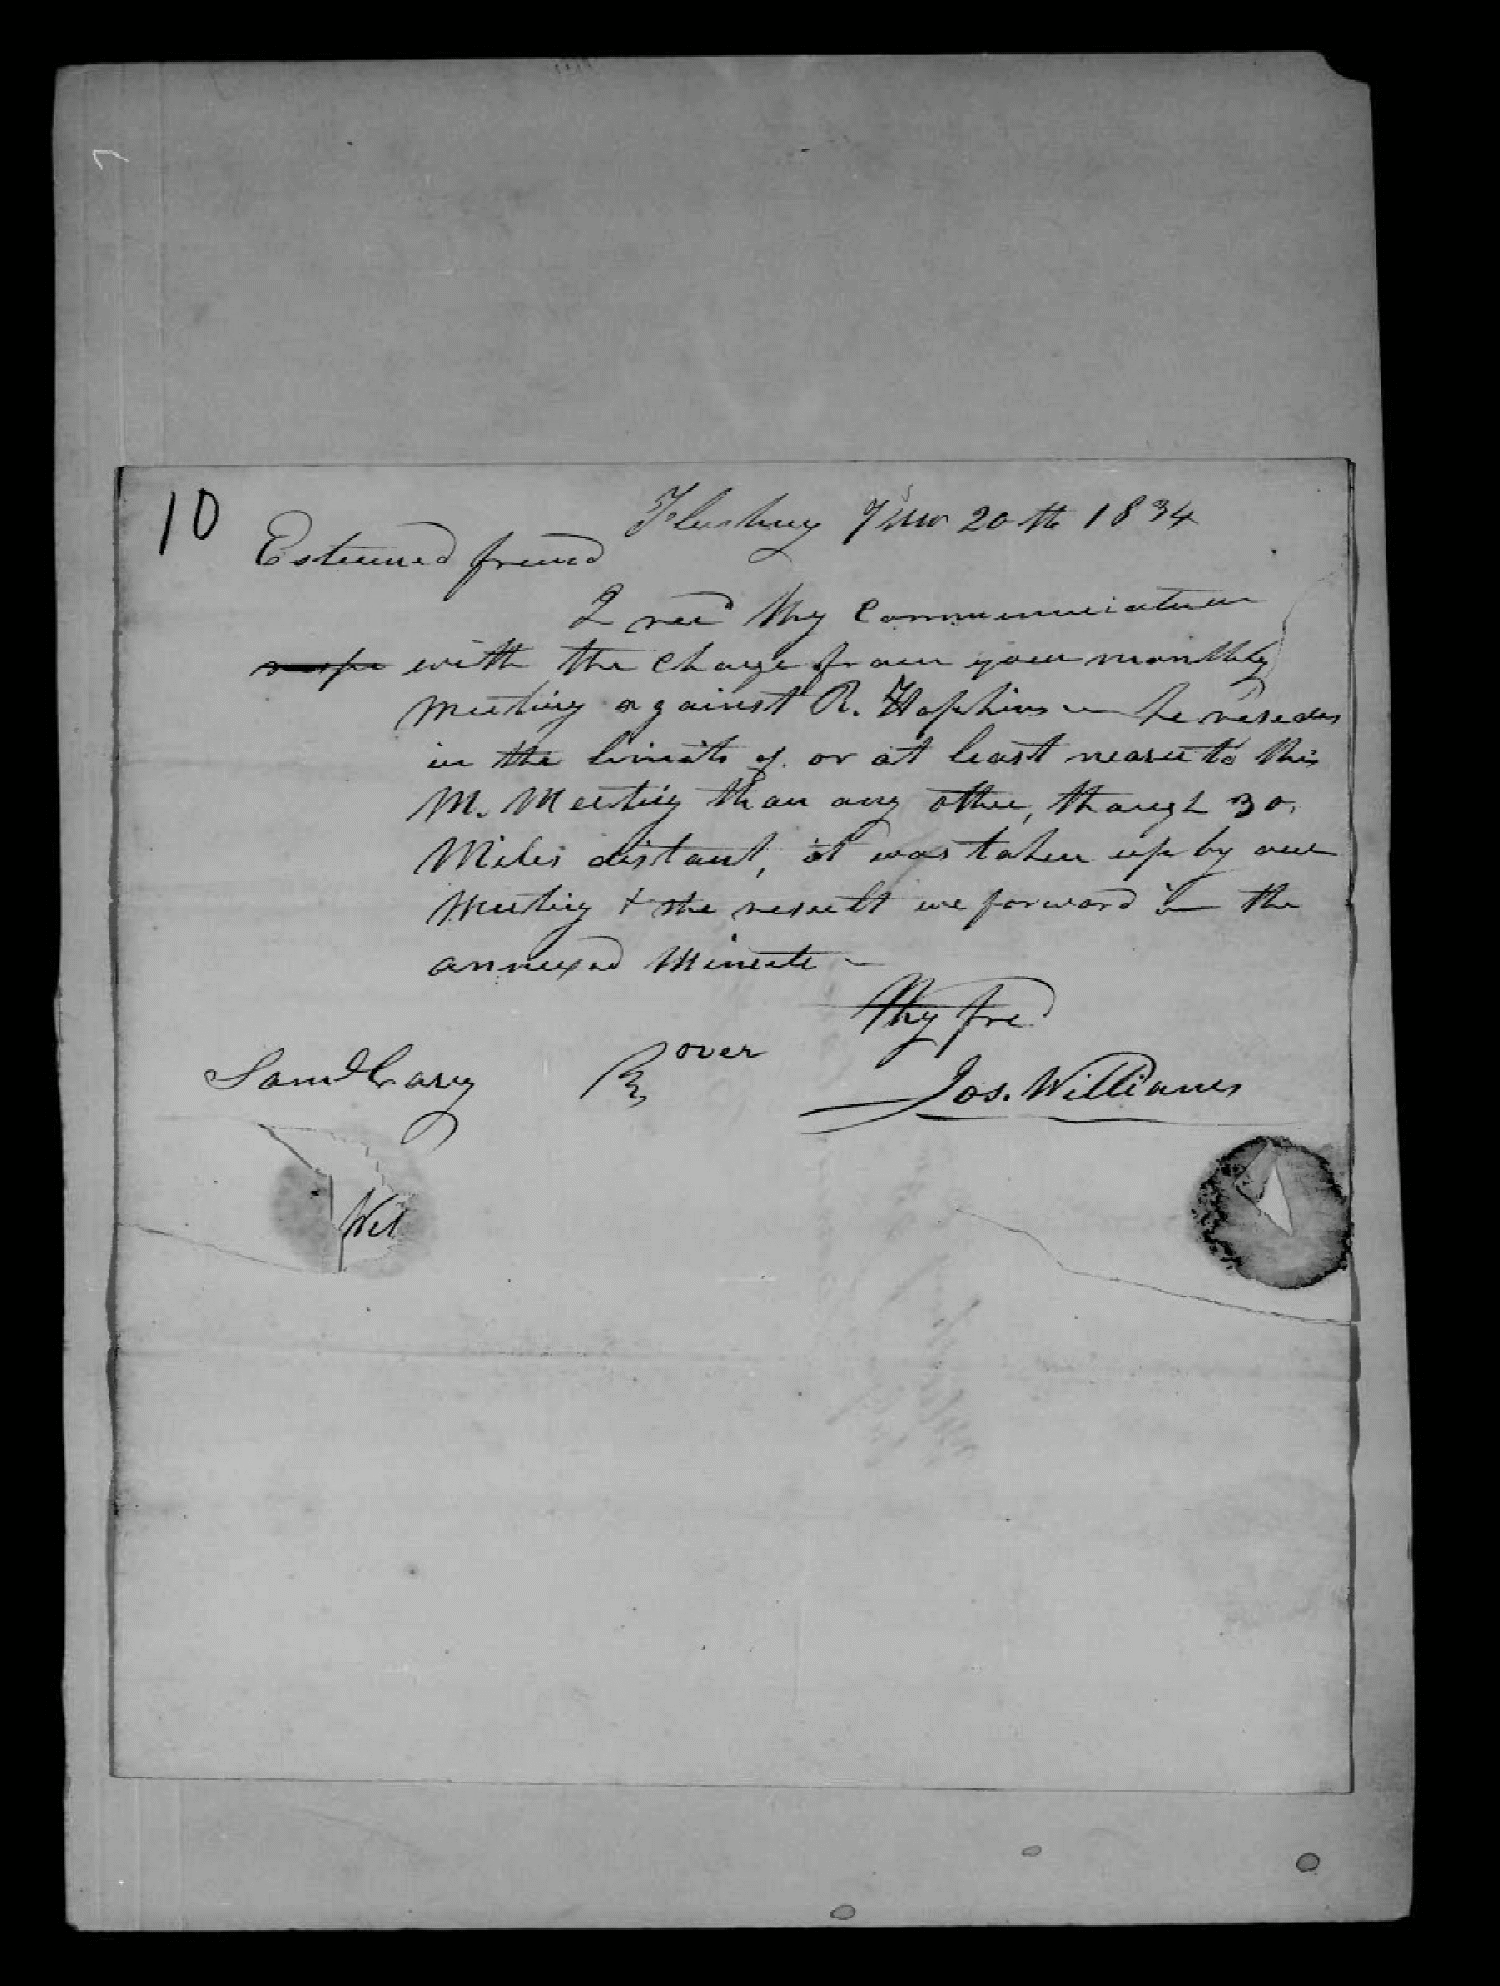 10
Flushing 7 mo 20th 1834
Esteemed friend
I recd thy communication
with the charge from your monthly
meeting against R. Hopkins — he resides
in the limits of or at least nearer to this
M. Meeting than any other, though 30
Miles distant, it was taken up by our
Meeting & the result we forward in the
annexed Minute —
Thy frd
over
Saml Cary
Jos. Williams